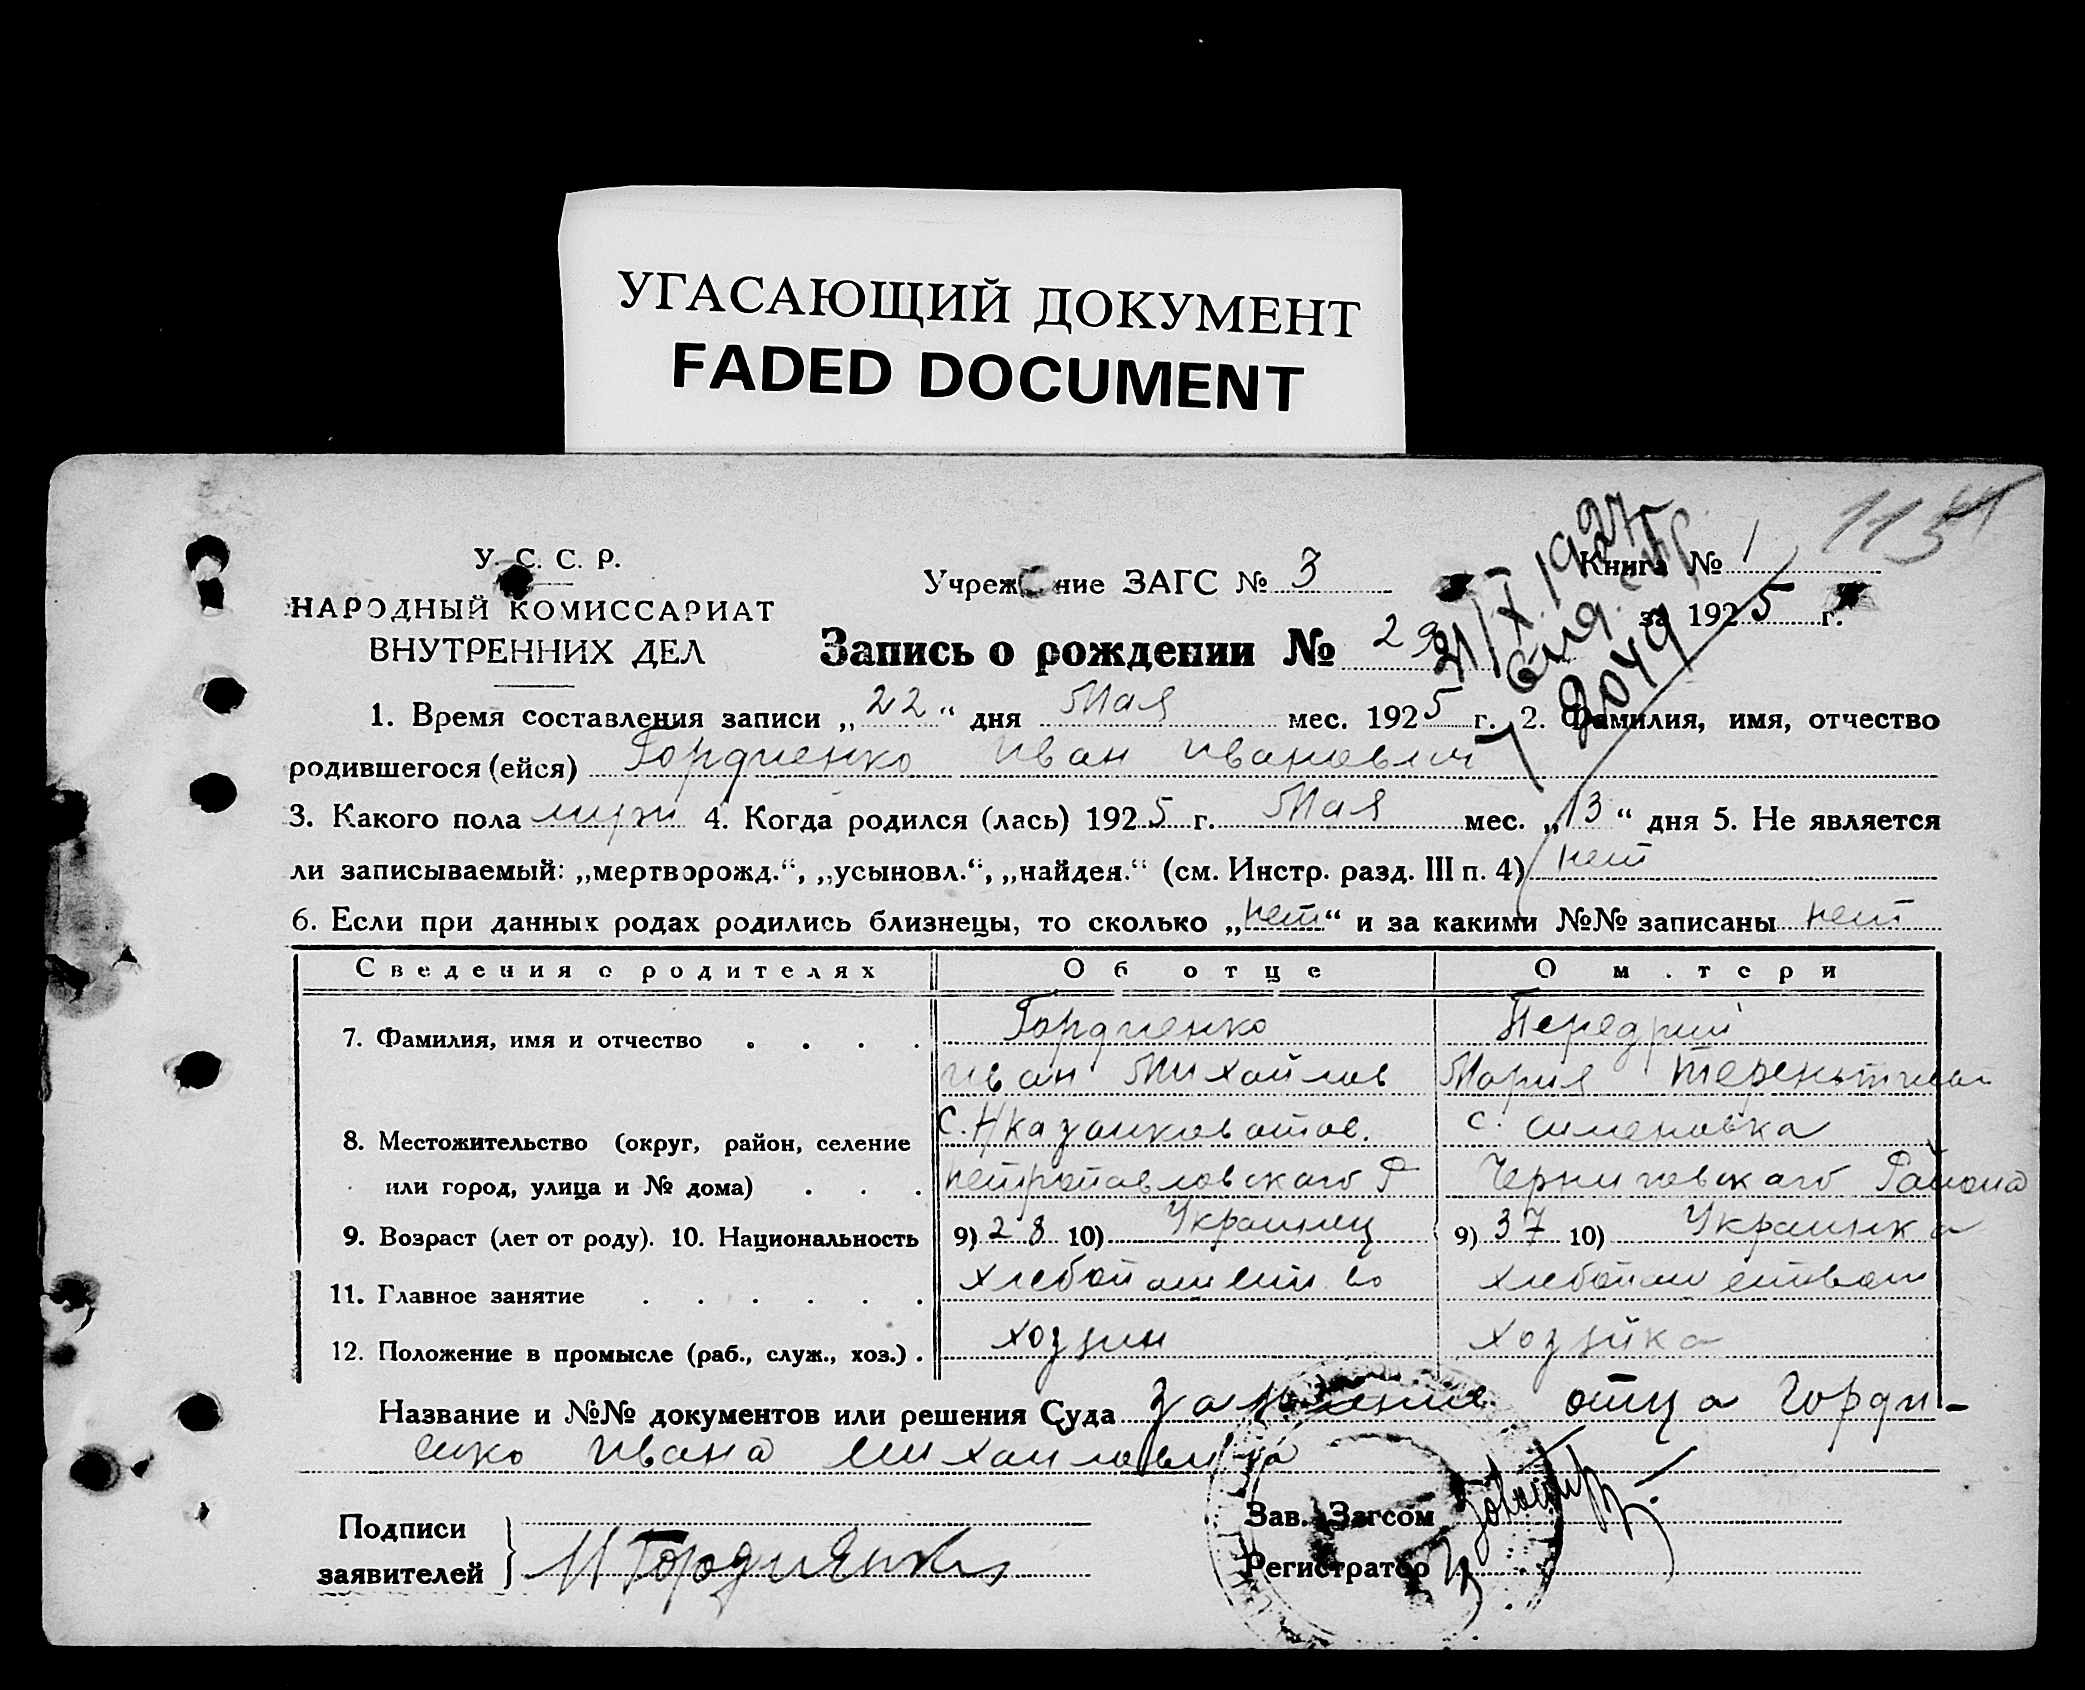 УГАСАЮЩИЙ ДОКУМЕНТ
FADED DOCUMENT
115
У. С. С. Р.
НАРОДНЫЙ КОМИССАРИАТ
ВНУТРЕННИХ ДЕЛ
Учреждение ЗАГС № 3
Книга № 1
за 1925 г.
21/X.1927
8049
Запись о рождении № 29
1. Время составления записи „22“ дня Мая мес. 1925 г. 2. Фамилия, имя, отчество
родившегося (ейся) Гордиенко Иван Иванович
3. Какого пола муж 4. Когда родился (лась) 1925 г. Мая мес. „13“ дня 5. Не является
ли записываемый: „мертворожд.“, „усыновл.“, „найден.“ (см. Инстр. разд. III п. 4) нет
6. Если при данных родах родились близнецы, то сколько „нет“ и за какими №№ записаны нет
Сведения о родителях Об отце О м.тери
7. Фамилия, имя и отчество . . . . Гордиенко Передрий
Иван Михайлов Мария Терентиева
8. Местожительство (округ, район, селение С. Н/казанковатов. с. Сименовка
или город, улица и № дома) . . . Петропавловскаго Р Черниговскаго Района
9. Возраст (лет от роду). 10. Национальность 9) 28 10) Украинец 9) 37 10) Украинка
11. Главное занятие . . . . . . Хлебопашество
12. Положение в промысле (раб., служ., хоз.) . хозяин хозяйка
Название и №№ документов или решения Суда заявление отца Горди-
енко Ивана Михаиловича
Подписи
заявителей } И Гордиенко
Зав. Загсом
Регистратор